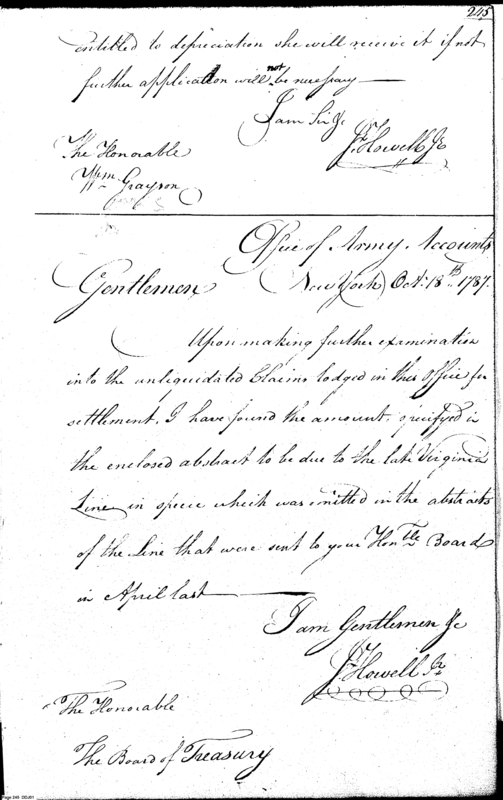 245
entitled to depreciation she will receive it if not
further application will not be necessary
I am Sir &c
Jos Howell Jr
The Honorable
Wm Grayson
Office of Army Accounts
New York Oct. 18th 1787.
Gentlemen
Upon making further examination
into the unliquidated Claims lodged in this Office for
settlement, I have found the amount, specifyed in
the enclosed abstract to be due to the late Virginia
Line in specie which was omitted in the abstracts
of the Line that were sent to your Honble Board
in April last
I am Gentlemen &c
Jos Howell Jr
The Honorable
The Board of Treasury
Page 245